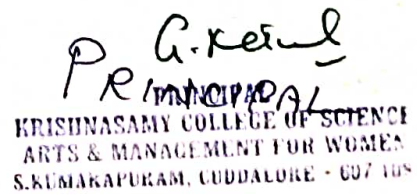 PRINCIPAL
PRINCIPAL
KRISHNASAMY COLLEGE OF SCIENCE
ARTS & MANAGEMENT FOR WOMEN
S.KUMARAPURAM, CUDDALORE - 607